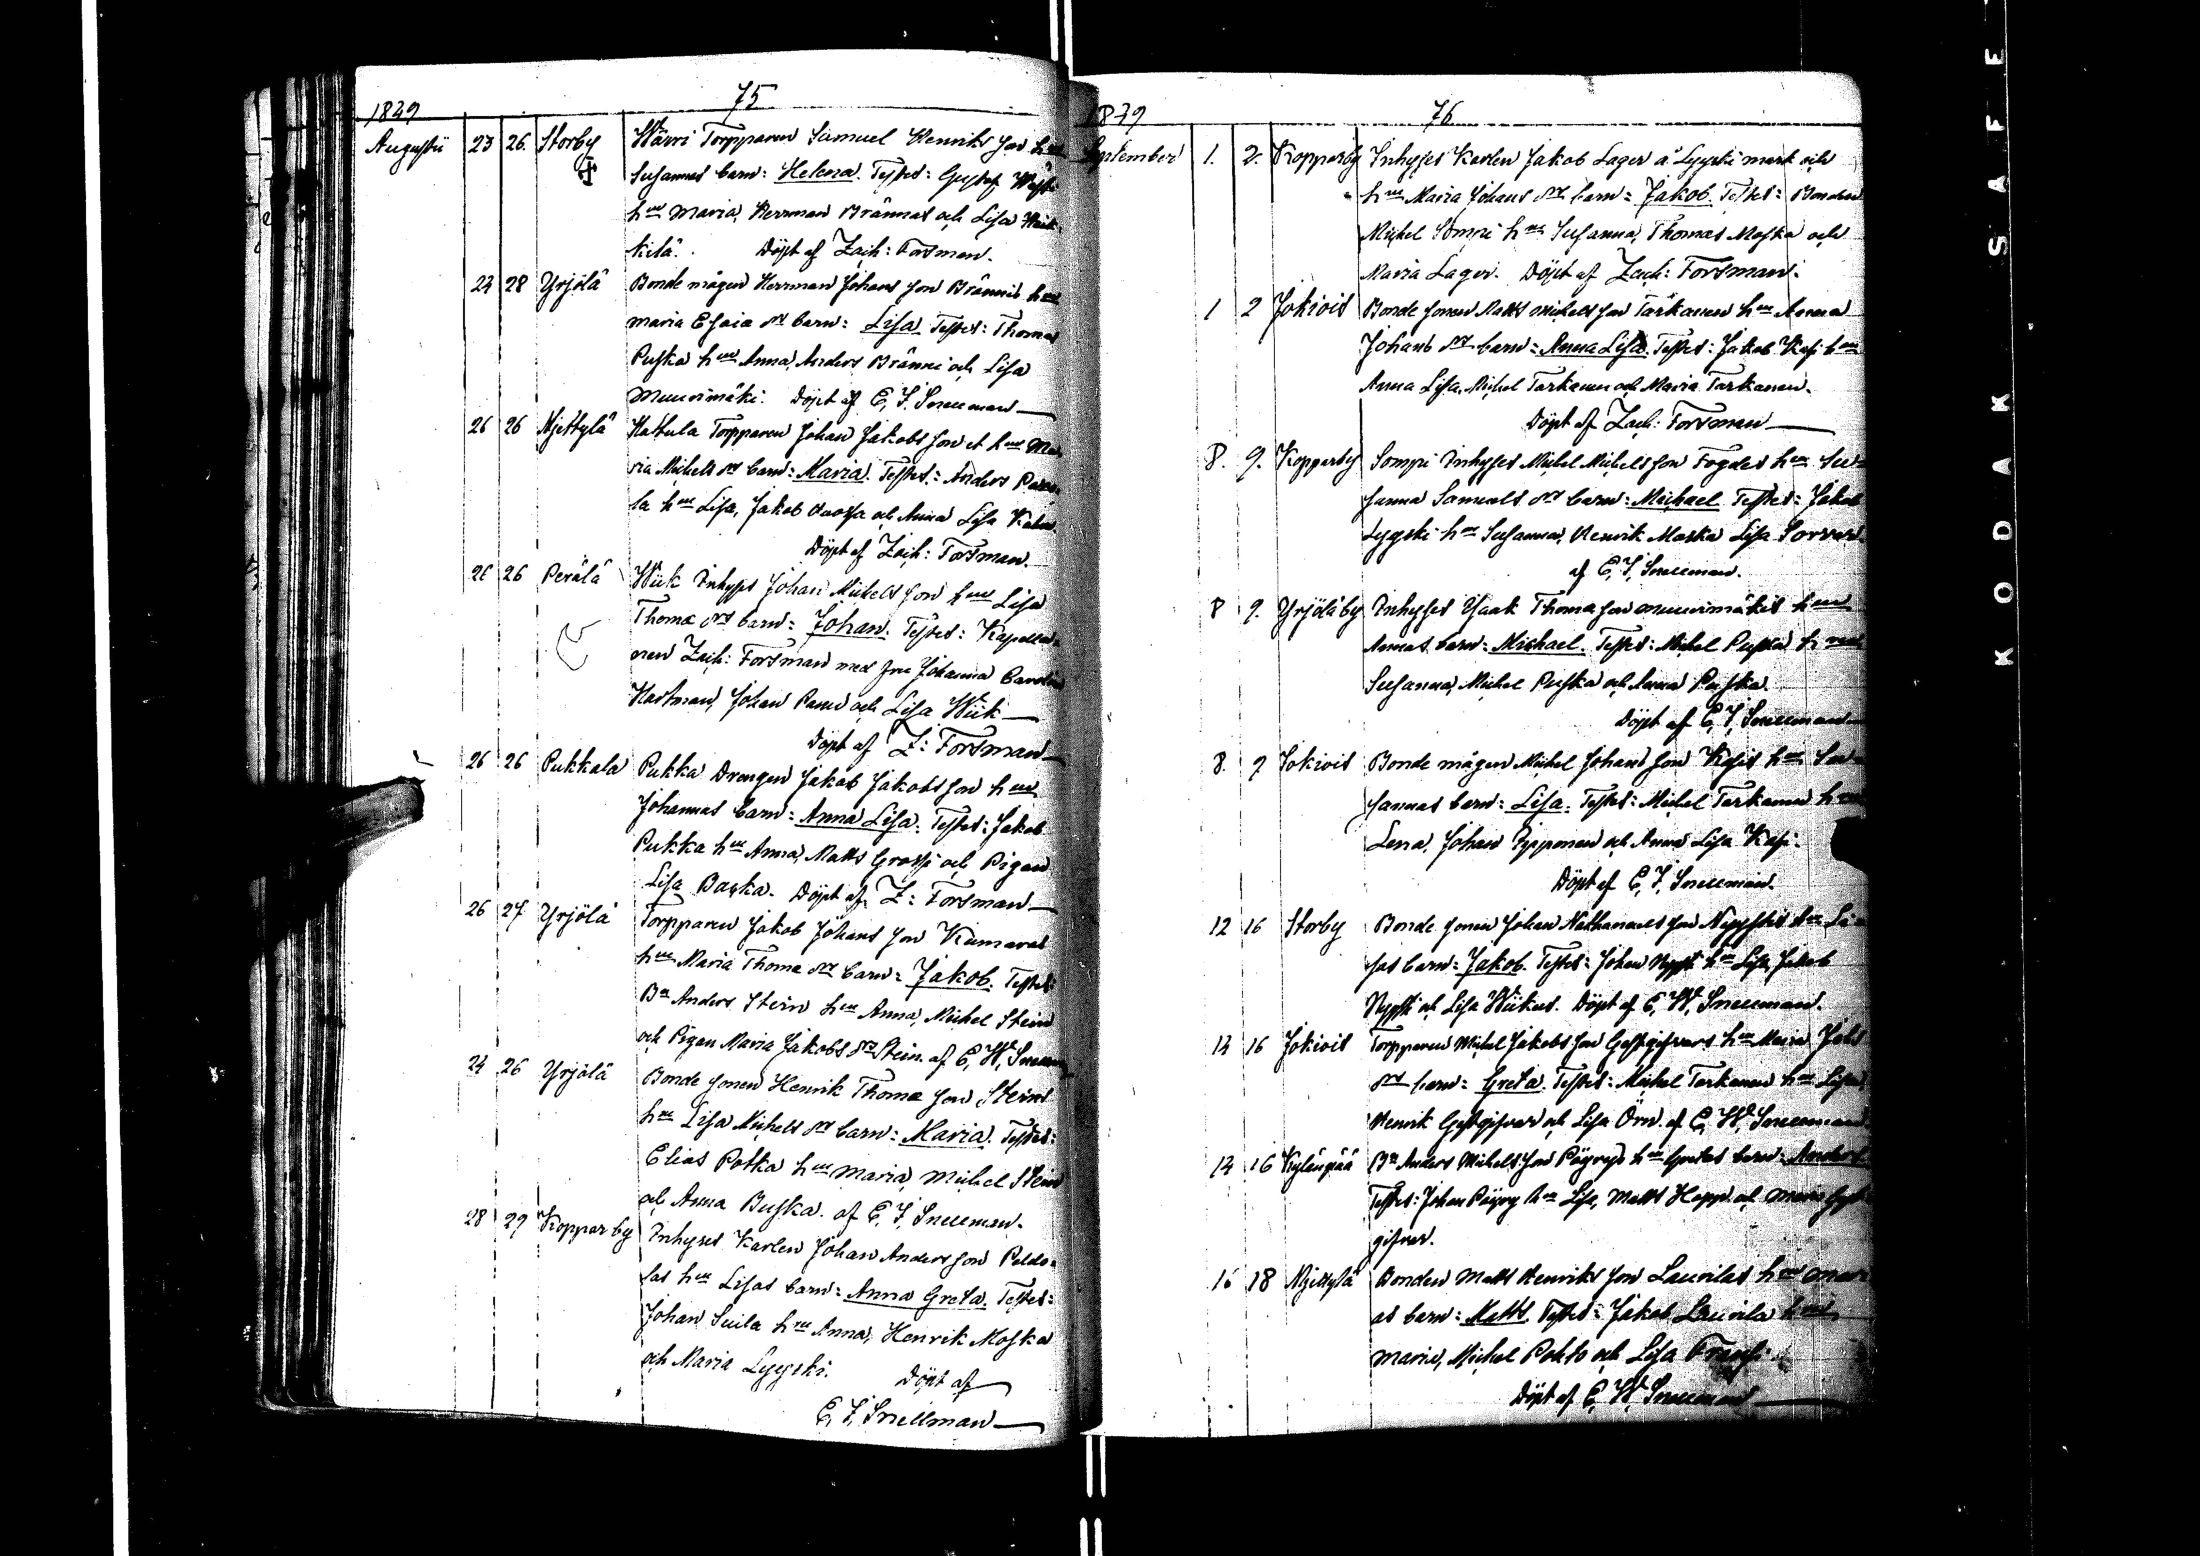 75
1839
Augusti 23 26. Storby Wärri Torpparen Samuel Henriks son h
Susannas barn: Helena. Testes: Gustaf
hru Maria, Herrman Brännas och Lisa
kilä. Döpt af Zach: Forsman.
24 28 Yrjölä Bonde mågen Herrman Johans son Brännis hru
Maria Esaiæ dr barn: Lisa. Testes: Thomas
Puska hru Anna, Anders Bränni och Lisa
Muurimäki. Döpt af C, F, Snellman
26 26 Mjettylä Hattula Torpparen Johan Jakobs son et hru Ma
ria Michels dr barn: Maria. Testes: Anders
la hru Lisa, Jakob och Anna Lisa
Döpt af Zach: Forsman.
26 26 Perälä Wiik Inhyses Johan Michels son hru Lisa
Thomæ dr barn: Johan. Testes: Kapella-
nen Zach: Forsman med fru Johanna Carolin
Hartman, Johan och Lisa Wiik
Döpt af Z: Forsman
26 26 Pukkala Pukka Drengen Jakob Jakobs son hru
Johannas barn: Anna Lisa. Testes: Jakob
Pukka hru Anna, Matts Grossi och Pigan
Lisa Baska. Döpt af Z: Forsman
26 27 Yrjölä Torpparen Jakob Johans son Kumaras
hru Maria Thomæ dr barn: Jakob. Testes:
Bn Anders Stein hru Anna, Michel Stein
och Pigan Maria Jakobs dr Stein. af C, W, Snellman
24 26 Yrjölä Bonde sonen Henrik Thomæ son Steins
hru Lisa Michels dr barn: Maria. Testes:
Elias Potka hru Maria, Michel Stein
och Anna Buska. af C, F, Snellman.
28 29 Kopparby Inhyses Karlen Johan Anders son Peldo-
las hru Lisas barn: Anna Greta. Testes:
Johan Suila hru Anna, Henrik Moska
och Maria Lyyski. Döpt af
C, F, Snellman
76
1839
September 1. 2. Kopparby Inhyses Karlen Jakob Lager å Lyyski mark och
hru Maria Johans dr barn: Jakob. Testes: Bonden
Michel Sompi hru Susanna, Thomas Moska och
Maria Lager. Döpt af Zach: Forsman.
1 2 Jokivis Bonde sonen Matts Michels son Tarkanen hru Anna
Johans dr barn: Anna Lisa. Testes: Jakob Kasi hru
Anna Lisa, Michel Tarkanen och Maria Tarkanen.
Döpt af Zach: Forsman
8. 9. Kopparby Sompi Inhyses Michel Michels son Fogdes hru Su-
sanna Samuels dr barn: Michael. Testes: Jakob
Lyyski hru Susanna, Henrik Moska Lisa
af C, F, Snellman.
8 9. Yrjölä by Inhyses Isaak Thomæ son Muurimäkis hru
Annas barn: Michael. Testes: Michel Puska hru
Susanna, Michel Puska och Anna Puska.
Döpt af C, F, Snellman
8. 9 Jokivis Bonde mågen Michel Johans son Kasis hru Su-
sannas barn: Lisa. Testes: Michel Tarkanen hru
Lena, Johan och Anna Lisa Kasi.
Döpt af C, F, Snellman.
12 16 Storby Bonde sonen Johan Nathanaels son hru Li-
sas barn: Jakob. Testes: Johan hru Lisa, Jakob
och Lisa Wiikus. Döpt af C, W, Snellman.
14 16 Jokivis Torpparen Michel Jakobs son Gestgifvars hru Maria
dr barn: Greta. Testes: Michel Tarkanen hru Lisa
Henrik Gestgifvar och Lisa Örn. af C, W, Snellman
14 16 Kylänpää Bn Anders Michels son Päyrys hru Gretas barn: Anders
Testes: Johan Päyry hru Lisa, Matts och Maria Gest-
gifvar.
16 18 Mjettylä Bonden Matts Henriks son Laurilas hru Mari-
as barn: Matts. Testes: Jakob Laurila hru
Maria, Michel Pohto och Lisa
Döpt af C, W, Snellman
KODAK SAFE